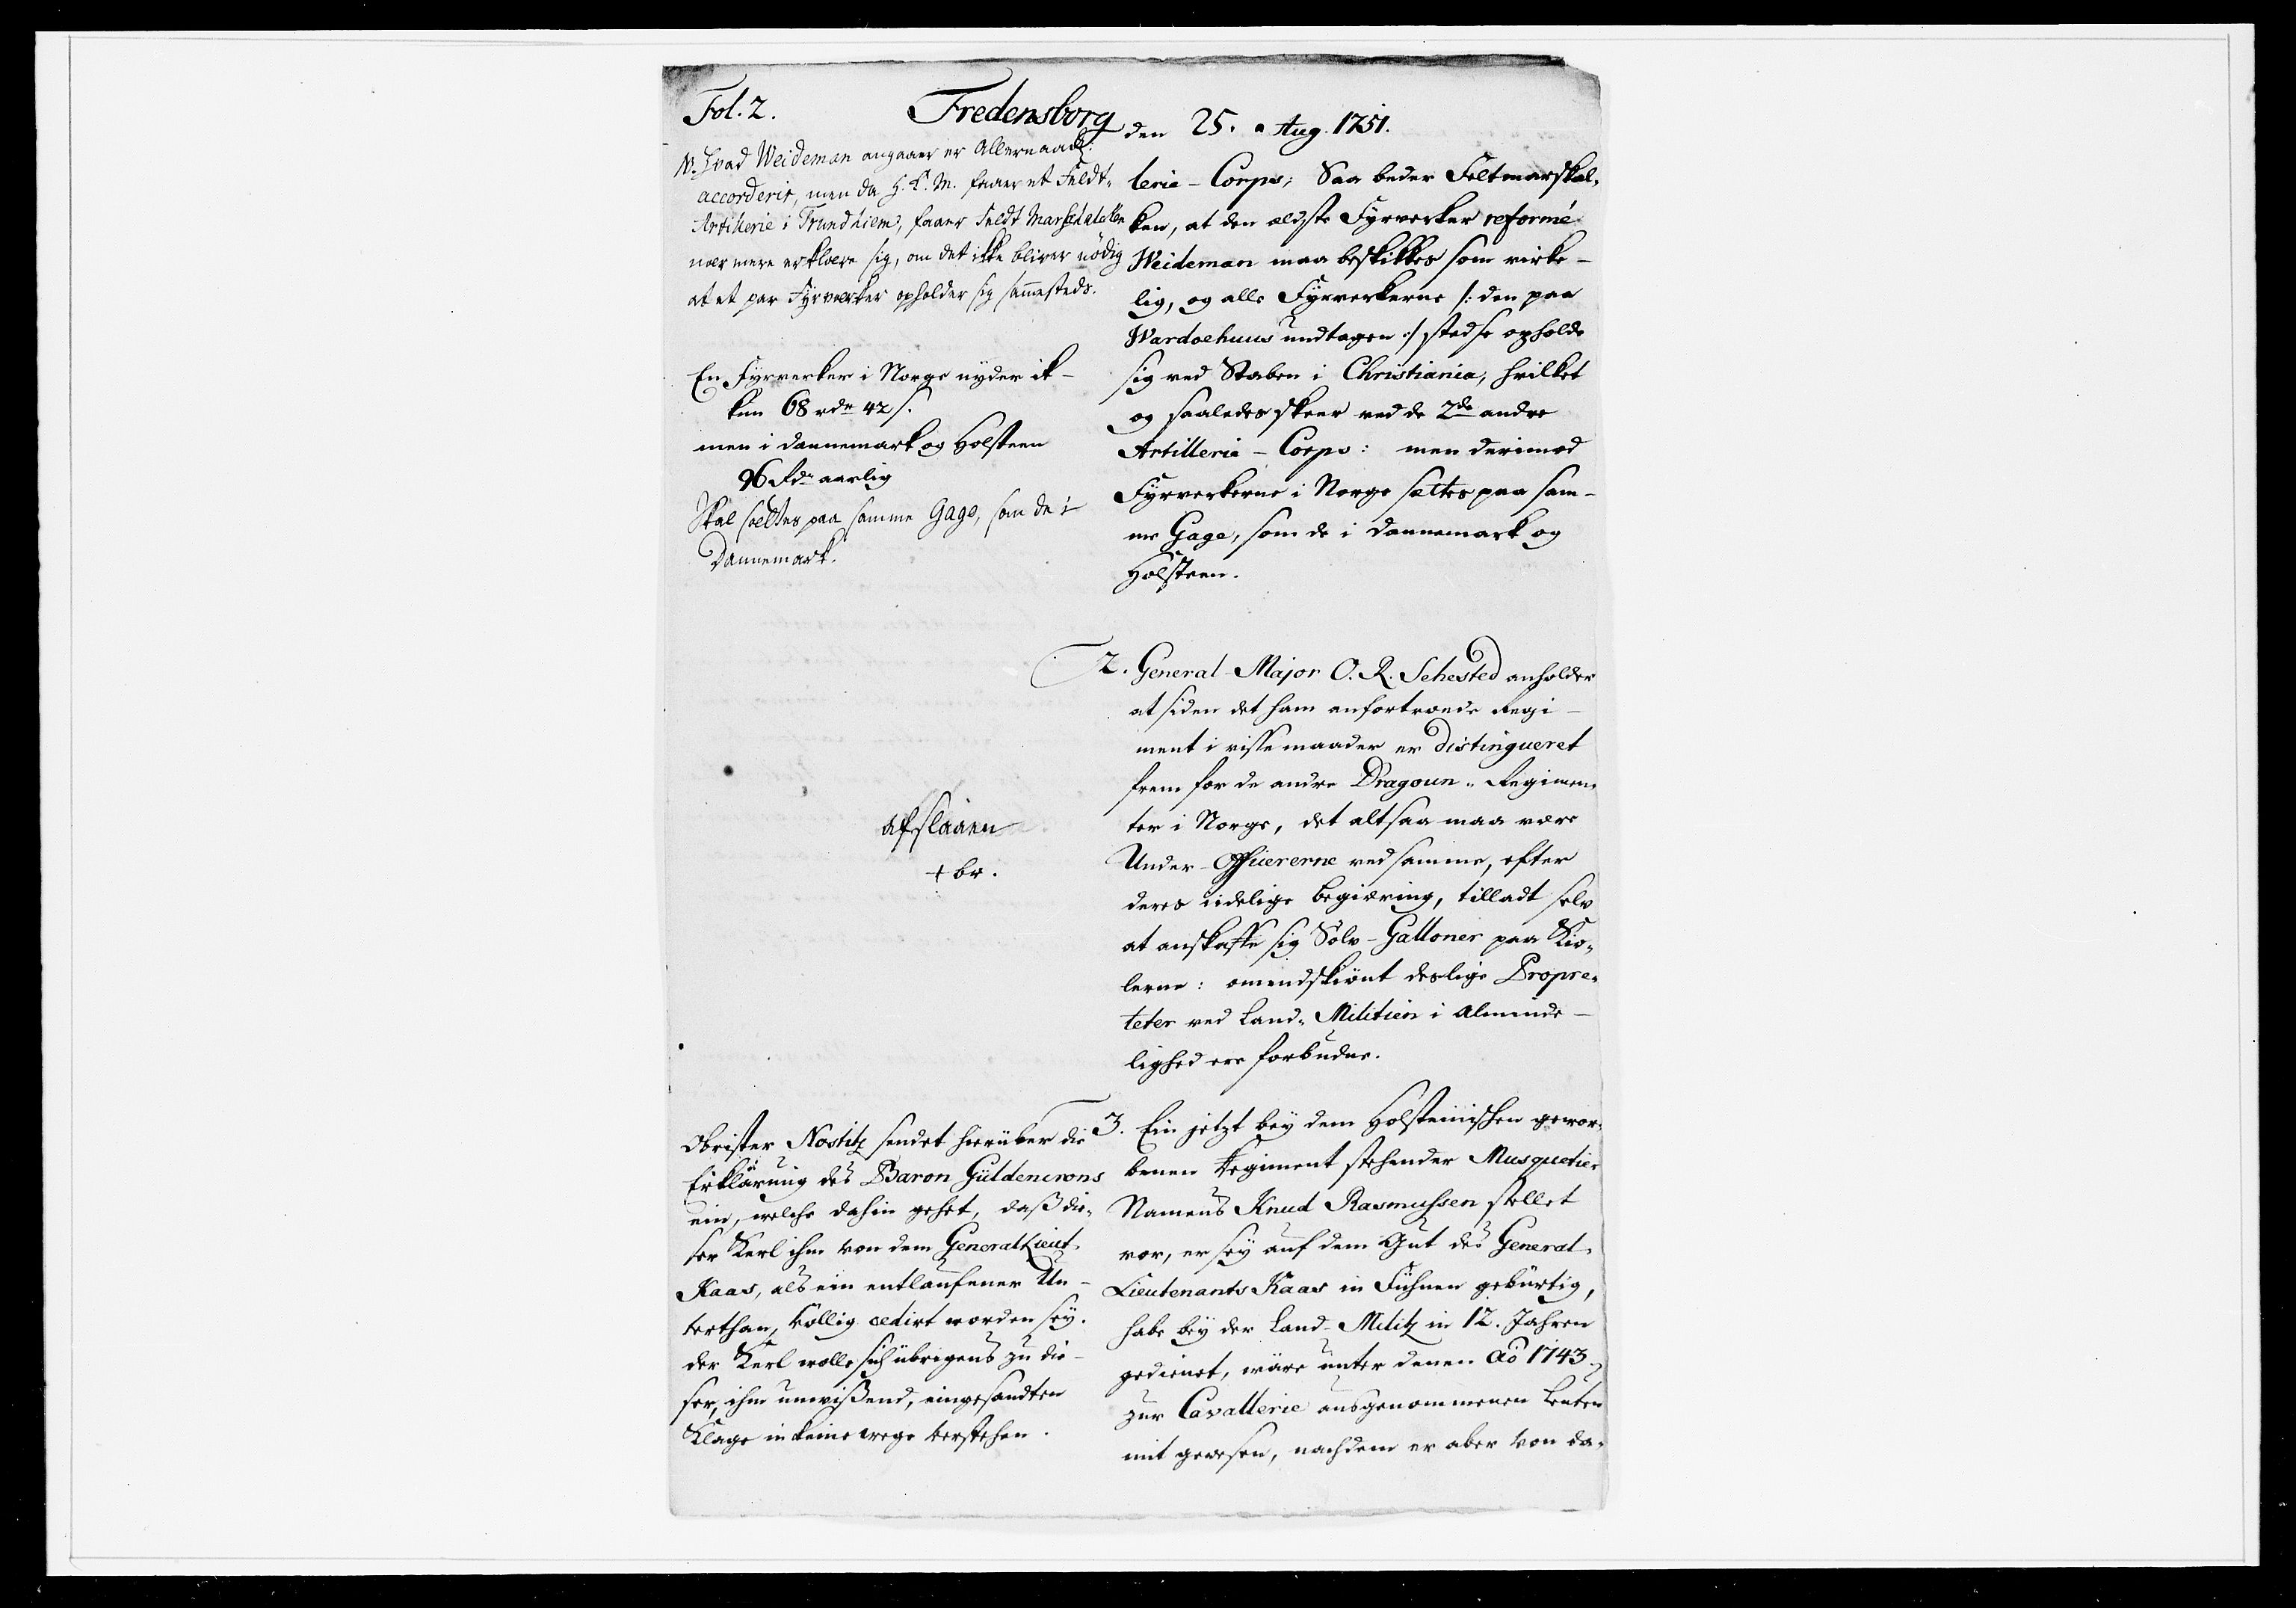 Fol. 2.
Fredensborg den 25. Aug. 1751.
N. Hvad Weideman angaaer er Allernaad:
accorderit, men da H. K. M. faaer et Feldt-
Artillerie i Trundhiem, faaer Feldt Marschalcken
nærmere erklære sig, om det ikke bliver nödig
at et par Fyrværker opholder sig sammesteds.
En Fyrverker i Norge nyder ik-
kun 68 rdr 42 s.
men i Dannemark og Holsteen
96 Rdr aarlig
Skal sættes paa samme Gage, som de i
Dannemark.
afslaaen
+ br.
Obrister Nostitz sendet hierüber die
Erklärung des Baron Güldencrons
ein, welche dahin gehet, daß die-
ser Kerl ihm von dem General Lieut.
Kaas, als ein entlaufener Un-
terthan, völlig cedirt worden sey.
der Kerl wolle sich übrigens zu die-
ser, ihm unwißend, eingesandten
Klage in keine wege verstehen.
lerie-Corps; Saa beder Feltmarskal-
ken, at den ældste Fyrverker reformé
Weideman maa beskikkes som virke-
lig, og alle Fyrverkerne /: den paa
Wardoehuus undtagen :/ stedse opholde
sig ved Staben i Christiania, hvilket
og saaledes skeer ved de 2de andre
Artillerie-Corps: men derimod
Fyrverkerne i Norge sættes paa sam-
me Gage, som de i Dannemark og
Holsteen.
2. General-Major O. R. Sehested anholder
at siden det ham anfortroede Regi-
ment i visse maader er distingueret
frem for de andre Dragoun-Regimen-
ter i Norge, det altsaa maa være
Under-Officererne ved samme, efter
deres iidelige begiæring, tilladt selv
at anskaffe sig Sölv-Galloner paa Kio-
lerne: omendskiönt deslige Propre-
teter ved Land-Militien i Alminde-
lighed ere forbudne.
3. Ein jetzt bey dem Holsteinischen gewor-
benen Regiment stehender Musquetier
Namens Knud Rasmussen stellet
vor, er sey auf dem Gut des General-
Lieutenants Kaas in Fühnen gebürtig,
habe bey der Land-Militz in 12. Jahren
gedienet, wäre unter denen Aö 1743
zur Cavallerie ausgenommenen Leuten
mit gewesen, nachdem er aber von da-